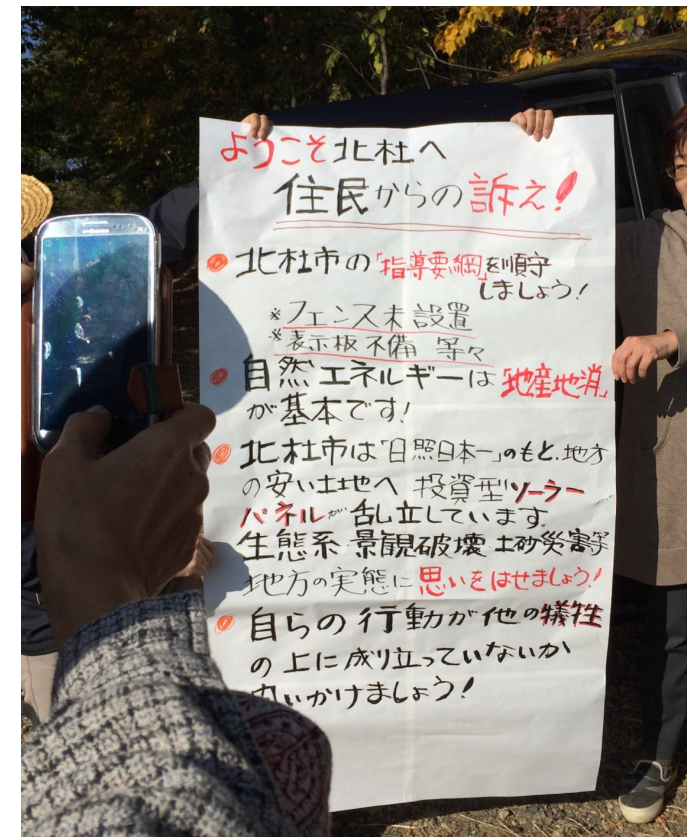 ようこそ北杜へ
住民からの訴え!
北杜市の「指導要綱」を順守
しましょう!
※フェンス未設置
※表示板不備 等々
自然エネルギーは「地産地消」
が基本です!
北杜市は「日照日本一」のもと、地方
の安い土地へ 投資型ソーラー
パネルが乱立しています。
生態系・景観破壊・土砂災害等
地方の実態に思いをはせましょう!
自らの行動が他の犠牲
の上に成り立っていないか
いかけましょう!